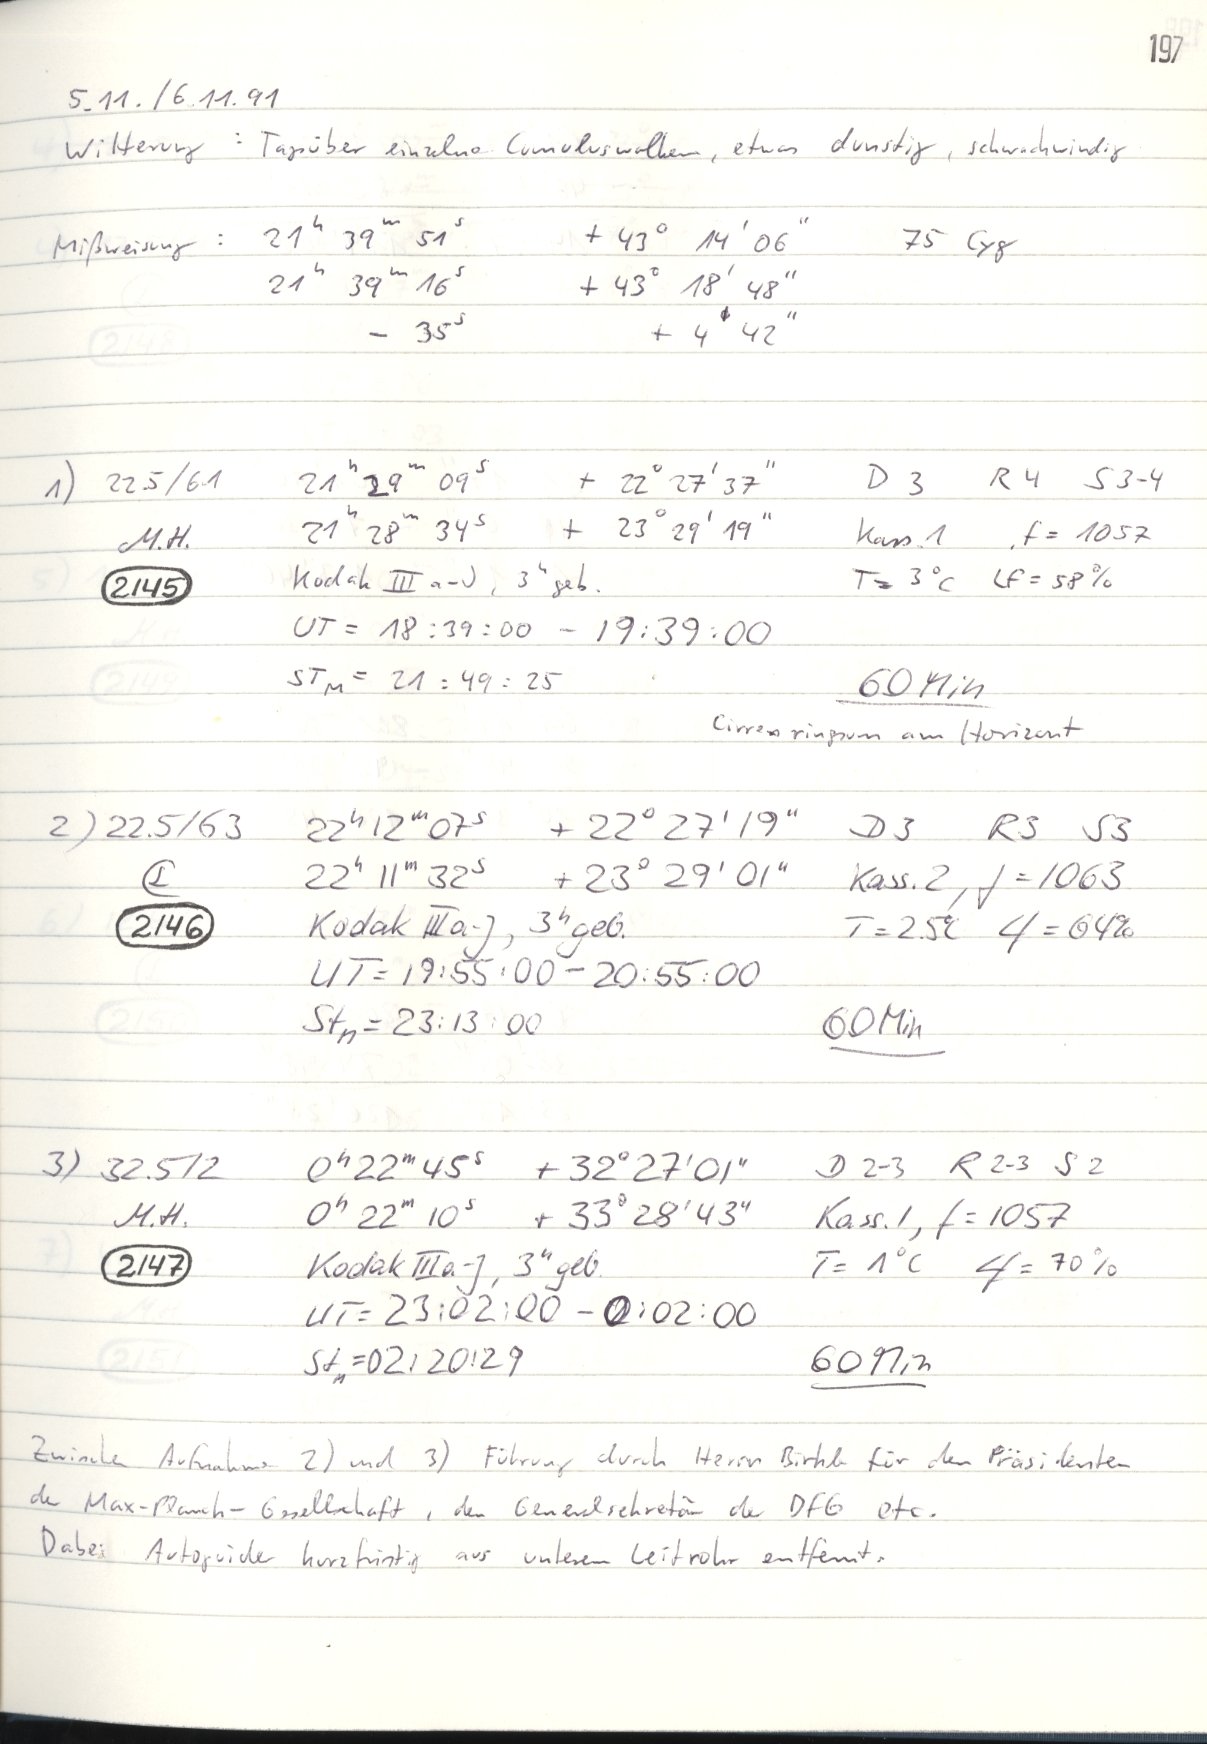 197
5.11./6.11.91
Witterung : Tagsüber einzelne Cumuluswolken, etwas dunstig, schwachwindig
Mißweisung : 21h 39m 51s + 43° 14' 06" 75 Cyg
21h 39m 16s + 43° 18' 48"
- 35s + 4' 42"
1) 22.5/61 21h 29m 09s + 22° 27' 37" D 3 R 4 S 3-4
M.H. 21h 28m 34s + 23° 29' 19" Kass. 1 , f = 1057
2145 Kodak III a-J, 3h geb. T = 3°C LF = 58%
UT = 18:39:00 - 19:39:00
STM = 21:49:25 60 Min
Cirren ringsum am Horizont
2) 22.5/63 22h 12m 07s + 22° 27' 19" D 3 R3 S3
22h 11m 32s + 23° 29' 01" Kass. 2, f = 1063
2146 Kodak IIIa-J, 3h geb. T = 2.5°C Lf = 64%
UT = 19:55:00 - 20:55:00
StM = 23:13:00 60 Min
3) 32.5/2 0h 22m 45s + 32° 27' 01" D 2-3 R 2-3 S 2
M.H. 0h 22m 10s + 33° 28' 43" Kass. 1, f = 1057
2147 Kodak IIIa-J, 3h geb. T = 1°C Lf = 70%
UT = 23:02:00 - 0:02:00
StM = 02:20:29 60 Min
Zwischen Aufnahme 2) und 3) Führung durch Herrn Birkle für den Präsidenten
der Max-Planck-Gesellschaft, den Generalsekretär der DFG etc.
Dabei Autoguider kurzfristig aus unterem Leitrohr entfernt.